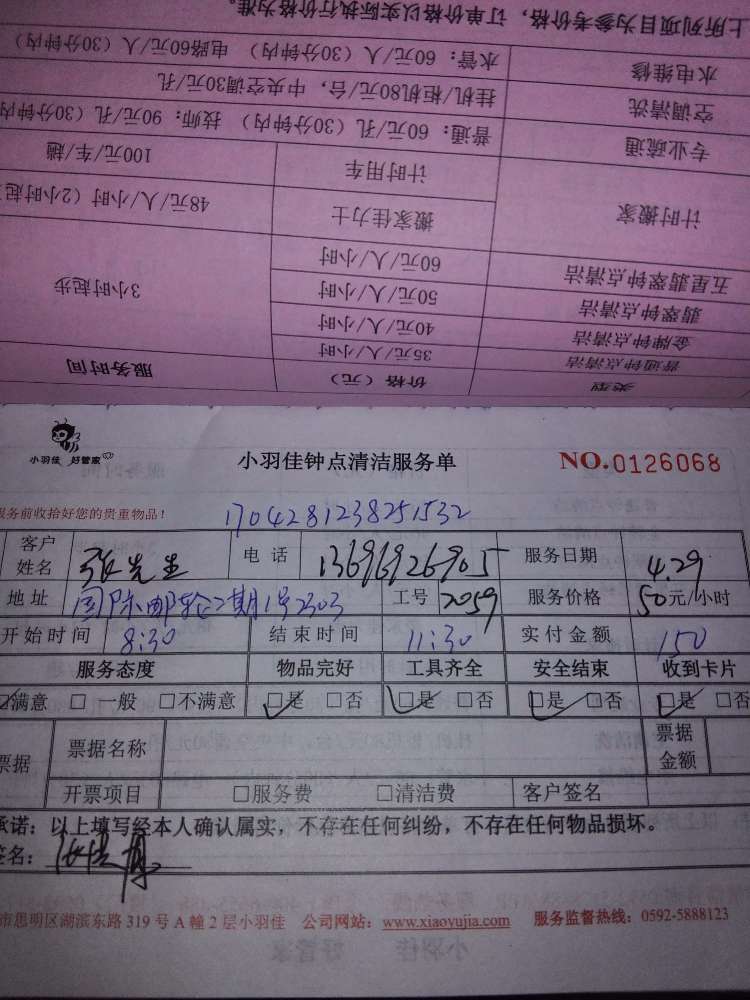 上所列项目为参考价格，订单价以实际执行价格为准。
水电维修 水管：60元/人（30分钟内） 电路60元/人（30分钟内）
空调清洗 挂机/柜机80元/台，中央空调30元/孔
专业疏通 普通：60元/孔（30分钟内） 技师：90元/孔（30分钟内
计时搬家 计时用车 100元/车/趟
搬家佳力士 48元/人/小时（2小时起
五星翡翠钟点清洁 60元/人/小时
翡翠钟点清洁 50元/人/小时 3小时起步
金牌钟点清洁 40元/人/小时
普通钟点清洁 35元/人/小时
类型 价格（元） 服务时间
小羽佳 好管家
小羽佳钟点清洁服务单
NO.0126068
服务前收拾好您的贵重物品！
1704281238251532
客户姓名 张先生 电话 13696926905 服务日期 4.29
地址 国际邮轮2期1号2303 工号 2059 服务价格 50元/小时
开始时间 8:30 结束时间 11:30 实付金额 150
服务态度 物品完好 工具齐全 安全结束 收到卡片
满意 □一般 □不满意 □是 □否 □是 □否 □是 □否 □是 □否
票据 票据名称 票据金额
开票项目 □服务费 □清洁费 客户签名
承诺：以上填写经本人确认属实，不存在任何纠纷，不存在任何物品损坏。
签名：
市思明区湖滨东路319号A幢2层小羽佳 公司网站：www.xiaoyujia.com 服务监督热线：0592-5888123